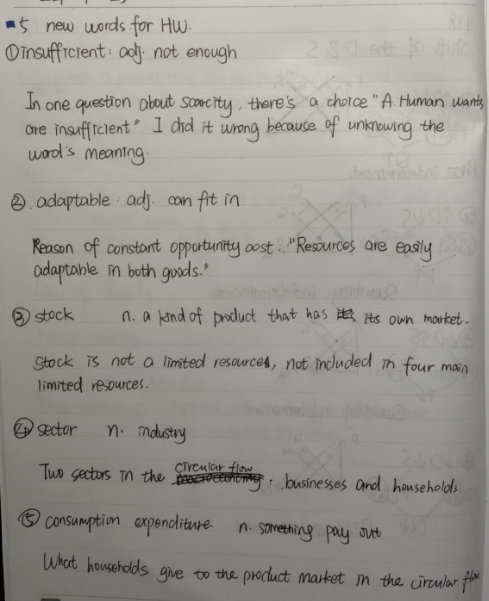 5 new words for HW.
① insufficient: adj. not enough
In one question about scarcity, there's a choice "A Human wants
are insufficient" I did it wrong because of unknowing the
word's meaning.
②. adaptable. adj. can fit in
Reason of constant opportunity cost.. "Resources are easily
adaptable in both goods."
③ stock n. a kind of product that has its own market.
Stock is not a limited resources, not included in four main
limited resources.
④ sector n. industry
Two sectors in the circular flow: businesses and households
⑤ consumption expenditure n. something pay out
What households give to the product market in the circular flow